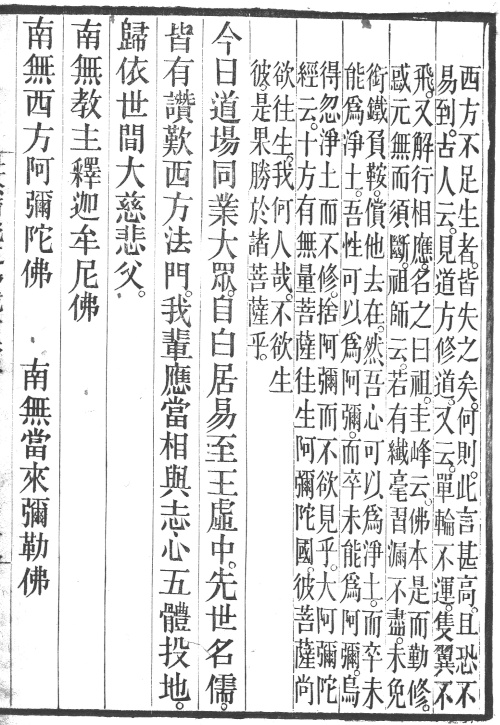 西方不足生者。皆失之矣。何則。此言甚高。且恐不
易到。古人云。見道方修道。又云。單輪不運。隻翼不
飛。又解行相應。名之曰祖。圭峰云。佛本是而勤修。
惑元無而須斷。祖師云。若有纖毫習漏不盡。未免
銜鐵負鞍。償他去在。然吾心可以為淨土。而卒未
能為淨土。吾性可以為阿彌。而卒未能為阿彌。烏
得忽淨土而不修。捨阿彌而不欲見乎。大阿彌陀
經云。十方有無量菩薩往生阿彌陀國。彼菩薩尚
欲往生。我何人哉。不欲生
彼。是果勝於諸菩薩乎。
今日道場同業大眾。自白居易至王虛中。先世名儒。
皆有讚歎西方法門。我輩應當相與志心五體投地。
歸依世間大慈悲父。
南無教主釋迦牟尼佛
南無西方阿彌陀佛 南無當來彌勒佛